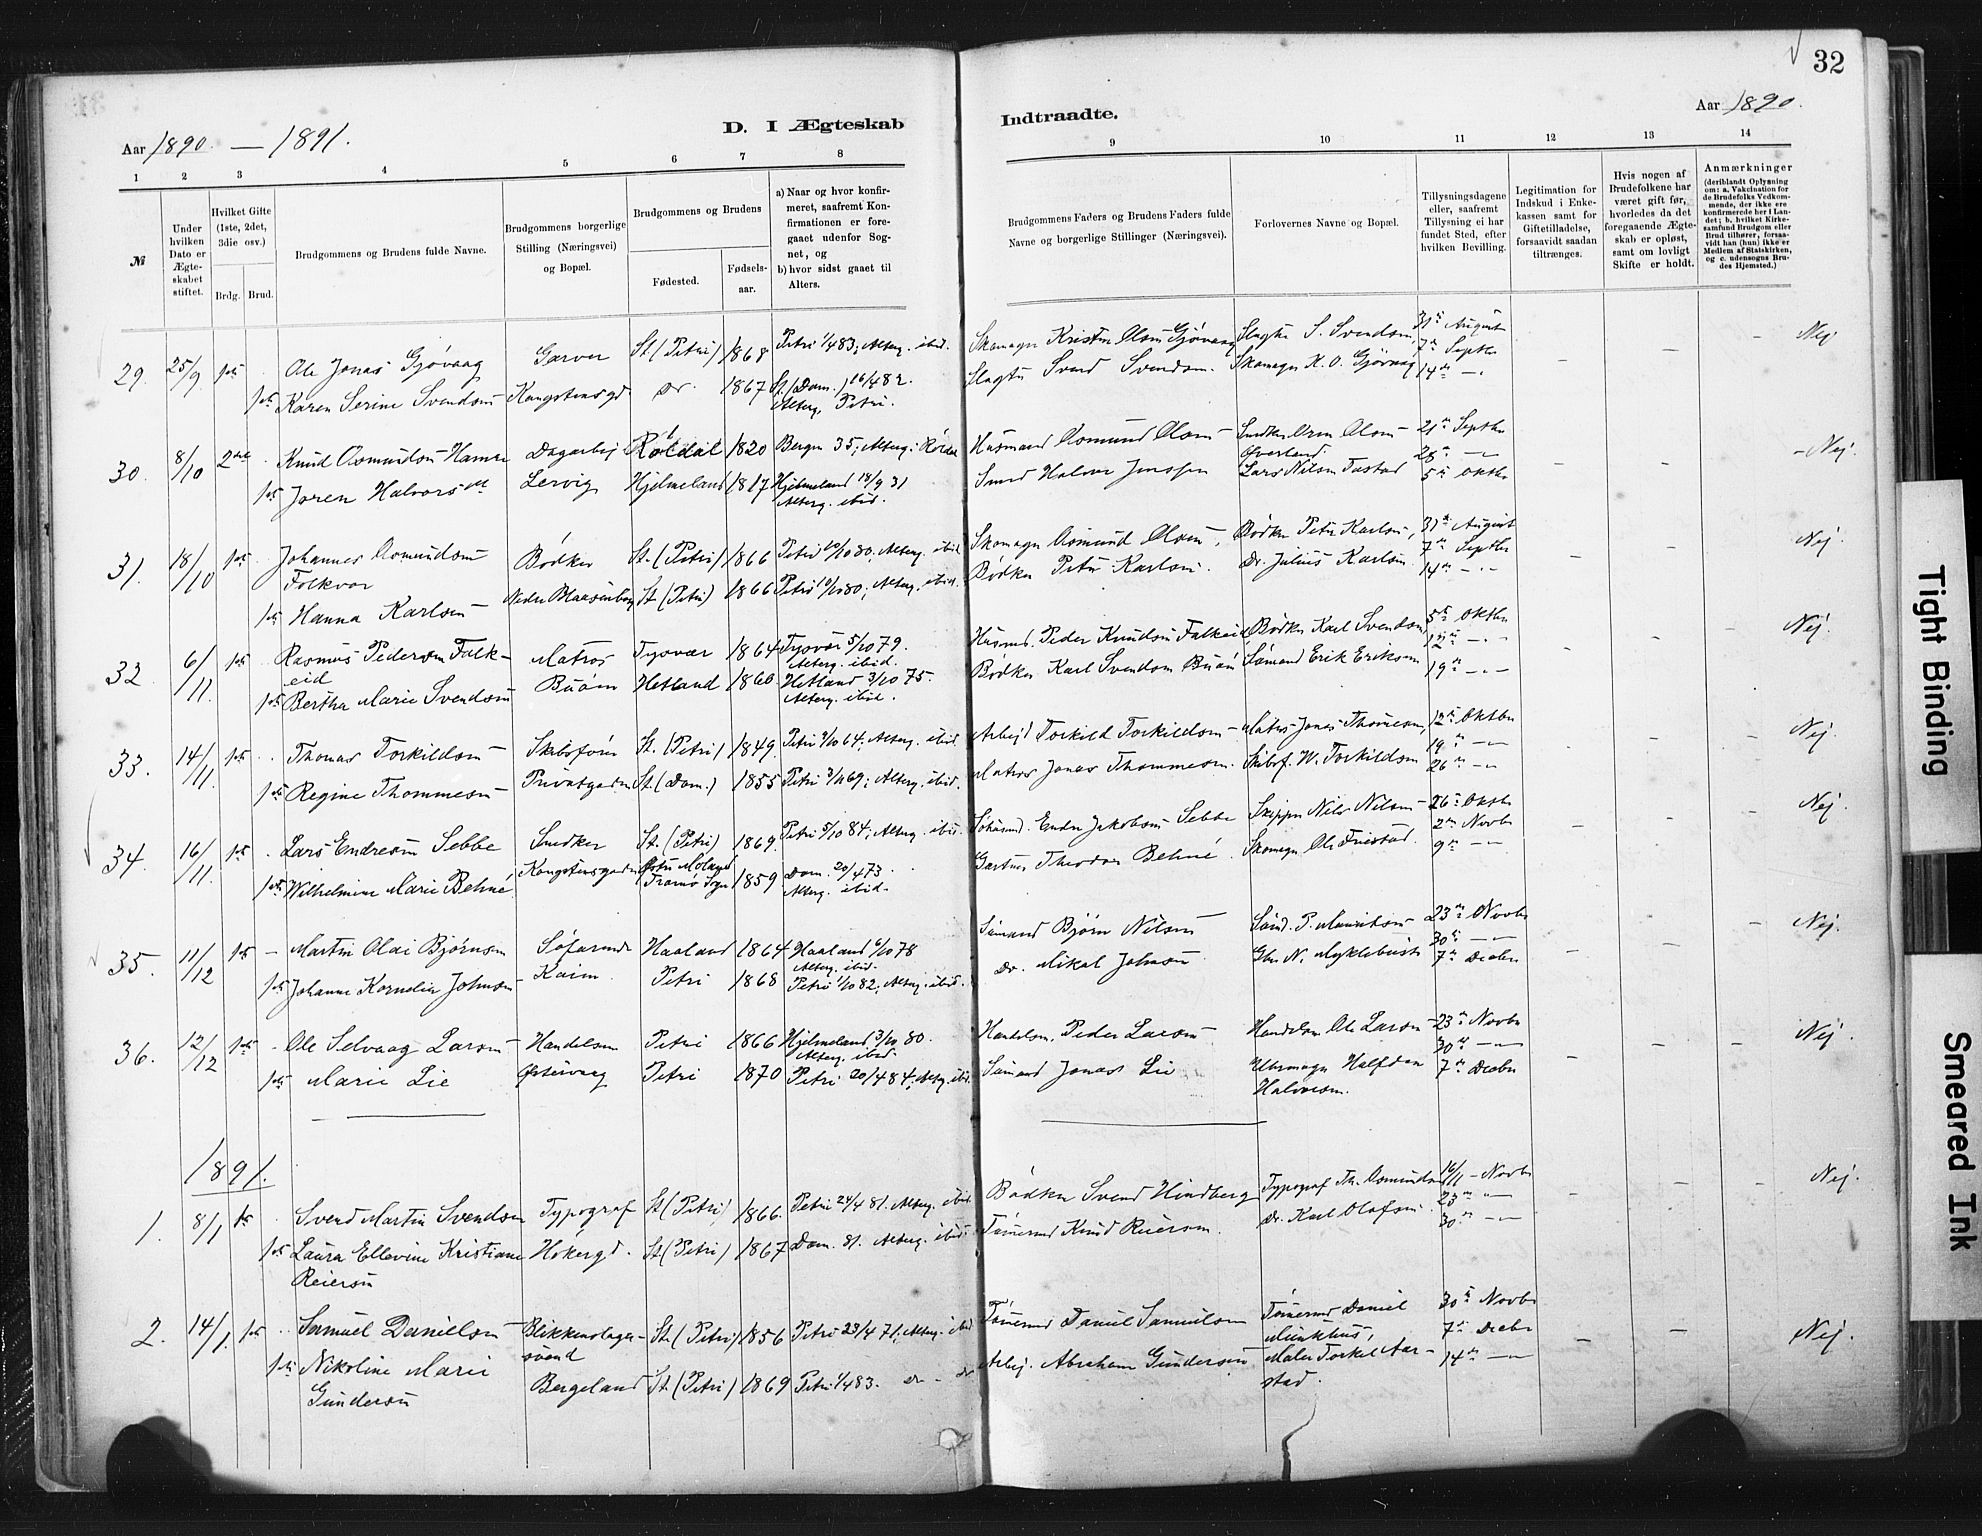 32
Aar 1890. — 1891.
D. I Ægteskab
Indtraadte.
Aar 1890.
1 2 3 4 5 6 7 8
9 10 11 12 13 14
№
Under hvilken Dato er Ægteskabet stiftet.
Hvilket Gifte (1ste, 2det, 3die osv.)
Brdg. Brud.
Brudgommens og Brudens fulde Navne.
Brudgommens borgerlige Stilling (Næringsvei) og Bopæl.
Brudgommens og Brudens
Fødested.
Fødselsaar.
a) Naar og hvor konfirmeret, saafremt Konfirmationen er foregaaet udenfor Sognet, og
b) hvor sidst gaaet til Alters.
Brudgommens Faders og Brudens Faders fulde Navne og borgerlige Stillinger (Næringsvei).
Forlovernes Navne og Bopæl.
Tillysningsdagene eller, saafremt Tillysning ei har fundet Sted, efter hvilken Bevilling.
Legitimation for Indskud i Enkekassen samt for Giftetilladelse, forsaavidt saadan tiltrænges.
Hvis nogen af Brudefolkene har været gift før, hvorledes da det foregaaende Ægteskab er opløst, samt om lovligt Skifte er holdt.
Anmærkninger
(deriblandt Oplysning om: a. Vakcination for de Brudefolks Vedkommende, der ikke ere konfirmerede her i Landet; b. hvilket Kirkesamfund Brudgom eller Brud tilhører, forsaavidt han (hun) ikke er Medlem af Statskirken, og c. udensogns Brudes Hjemsted.)
29. 25/9 1ste Ole Jonas Gjøvaag Garver St. (Petri) 1868 Petri 1/4 83; Alterg. ibid. Skomager Kristen Olsen Gjøvaag Slagter S. Svendsen 31te August — — — Nej
1ste Karen Serine Svendsen Kongstensgd Do. 1867 St. (Dom.) 16/4 82. Slagter Svend Svendsen. Skomager K. O. Gjøvaag 7de Septbr
Alterg. Petri. 14de — "
30. 8/10 2det Knud Osmundsen Hamre Dagarbej Røldal 1820 Bergen 35; Alterg. i Røldal Husmand Osmund Olsen Snedker Orm Olsen 21de Septbr — — — Nej.
Øverland 28de —
1ste Joren Halvorsdt Lervig Hjelmeland 1817 Hjelmeland 18/9 31 Smed Halvor Jensen Lars Nilsen Tastad 5te Oktbr
Alterg. ibid.
31. 18/10 1ste Johannes Osmundsen Bødker St. (Petri) 1866 Petri 10/10 80; Alterg. ibid. Skomager Osmund Olsen, Bødker Peter Karlsen, 31te August — — — Nej.
Folkvor 7de Septbr
1ste Hanna Karlsen Nedre Blaasenborg St. (Petri) 1866 Petri 10/10 80; Alterg. ibid. Bødker Peter Karlsen. Do. Julius Karlsen. 14de — "
32. 6/11. 1ste Rasmus Pedersen Falk- Matros Tysvær 1864 Tysvær 5/10 79. Husmd. Peder Knudsen Falkeid Bødker Karl Svendsen 5te Oktbr — — — Nej.
eid Alterg. ibid. 12te — "
1ste Bertha Marie Svendsen Buøen Hetland 1860 Hetland 3/10 75. Bødker Karl Svendsen Buøen Sømand Erik Eriksen 19de — "
Alterg. ibid.
33. 14/11. 1ste Thomas Torkildsen Skibsfører St. (Petri) 1849. Petri 9/10 64; Alterg. ibid. Arbejd. Torkild Torkildsen Matros Jonas Thomsen, 12te Oktbr — — — Nej.
19de —
1ste Regine Thommesen Privatgaden St. (Dom.) 1855 Petri 3/10 69; Alterg. ibid. Matros Jonas Thommesen. Skibsf. W. Torkildsen 26de —
34. 16/11. 1ste Lars Endresen Sebbe Snedker St. (Petri) 1869. Petri 5/10 84; Alterg. ibid. Endre Jakobsen Sebbe Skipper Nils Nilsen 26de Oktbr — — — Nej.
Kongstensgaden 2den Novbr
1ste Wilhelmine Marie Behné Tromø Sogn 1859 Dom. 20/4 73 Gartner Theodor Behné. Skomager Ole Friestad. 9de —
Alterg. ibid.
35. 11/12 1ste — Martin Olai Bjørnsen Søfarende Haaland 1864 Haaland 6/10 78 Sømand Bjørn Nilsen Sømd. P. Mauritsen 23de Novbr — — — Nej.
Alterg. ibid. 30te —
1ste Johanne Kornelia Johnsen Kaien Petri 1868 Petri 1/10 82; Alterg. ibid. Do. Mikal Johnsen N. Myklebust 7de Decbr
36. 12/12 1ste Ole Selvaag Larsen Handelsm Petri 1866 Hjelmeland 3/10 80. Handelsm. Peder Larsen Handelsm. Ole Larsen 23de Novbr — — — Nej.
Alterg. ibid. 30te —
1ste Marie Lie Østervaag Petri 1870 Petri 20/4 84; Alterg. ibid. Sømand Jonas Lie Uhrmager Halfdan 7de Decbr
Halvorsen.
1891.
1. 8/1 1ste Svend Martin Svendsen Typograf St. (Petri) 1866. Petri 24/4 81. Alterg. ibid. Bødker Svend Hindberg Typograf Th. Osmundsen 16/11 — Novbr — — — Nej.
23de —
1ste Laura Ellevine Kristiane Høkergd. St. (Petri) 1867 Dom. 81. Alterg. ibid. Tømrmd Knud Reiersen. Do. Karl Olafsen 30te —
Reiersen
2. 14/1. 1ste Samuel Danielsen Blikkenslager- St. (Petri) 1856 Petri 23/4 71, Alterg. ibid Tømrmd Daniel Samuelsen Tømrmd Daniel 30te Novbr — — Nej.
svend Munkhus, 7de Decbr
1ste Nikoline Marie Bergeland St. (Petri) 1869 Petri 1/4 83. do — do Arbej. Abraham Gundersen Maler Torkel Aar- 14de —
Gundersen stad.
Tight Binding
Smeared Ink